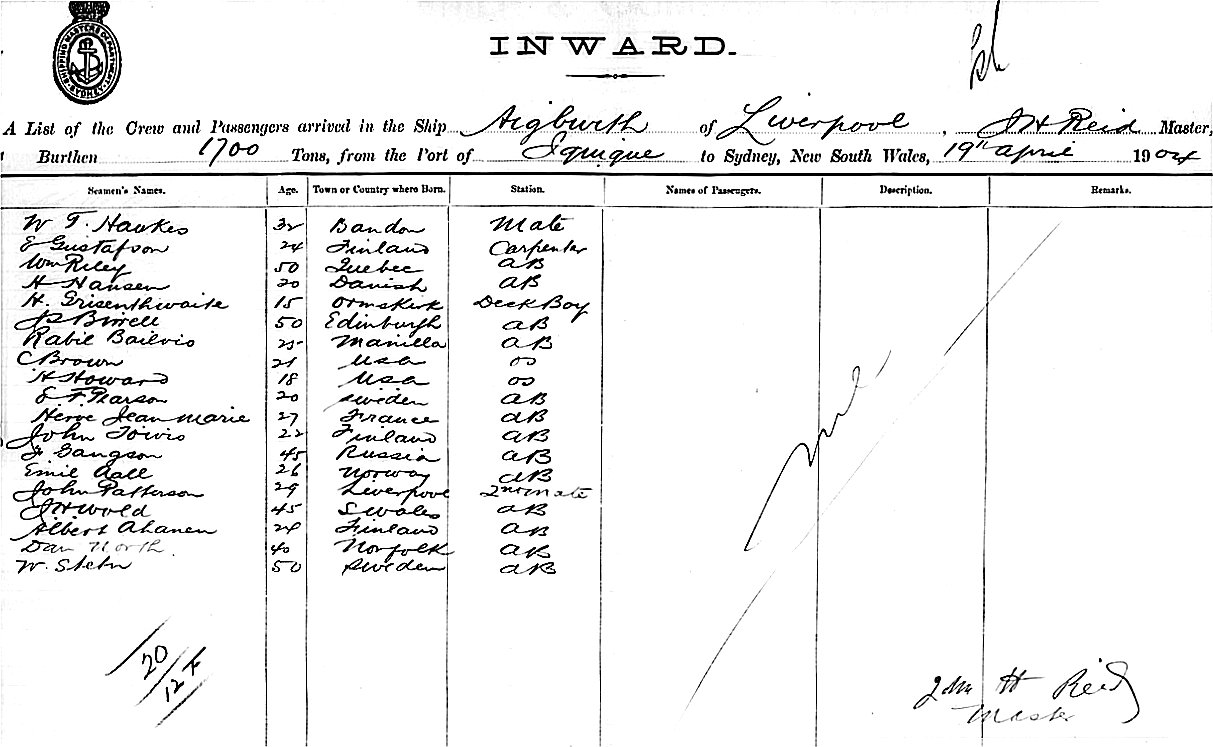 SHIPPING MASTERS DEPARTMENT SYDNEY
INWARD.
A List of the Crew and Passengers arrived in the Ship Aigburth of Liverpool, J H Reid Master,
Burthen 1700 Tons, from the Port of Iquique to Sydney, New South Wales, 19th april 1904
Seamen's Names. Age. Town or Country where Born. Station. Names of Passengers. Description. Remarks.
W T. Hawkes 32 Bandon Mate
E Gustafson 24 Finland Carpenter
Wm Riley 50 Quebec AB
H Hansen 20 Danish AB
H. Grisenthwaite 15 Ormskirk Deck Boy
Birrell 50 Edinburgh AB
Rabil Bailvis 25 Manilla AB
C Brown 21 USA OS
H Howard 18 USA OS
E F. Pearson 20 Sweden AB
Herve Jean Marie 27 France AB
John Towis 22 Finland AB
Gangson 45 Russia AB
Emil Aall 26 Norway AB
John Patterson 29 Liverpool 2nd Mate
J H Wold 45 S Wales AB
Albert Ahanen 24 Finland AB
Dan North 40 Norfolk AB
W. Stehn 50 Sweden AB
nil
20
12 F
John H Reid
Master